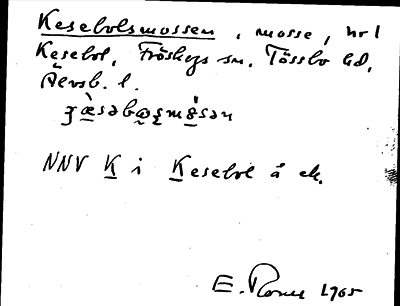 Kesebolsmossen, mosse, nr 1
Kesebol, Fröskogs sn, Tössbo hd,
Älvsb. l.
ʒæ̀səbωʂmǿsən
NNV K i Kesebol å ek.
E. 1965